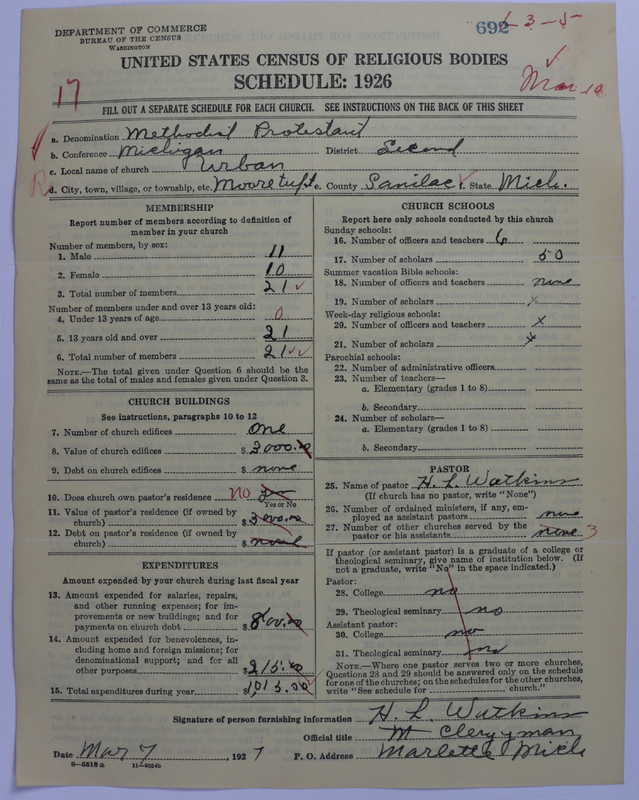 DEPARTMENT OF COMMERCE
BUREAU OF THE CENSUS
WASHINGTON
692
6-3-5
UNITED STATES CENSUS OF RELIGIOUS BODIES
SCHEDULE: 1926
17
FILL OUT A SEPARATE SCHEDULE FOR EACH CHURCH. SEE INSTRUCTIONS ON THE BACK OF THIS SHEET
a. Denomination Methodist Protestant
b. Conference Michigan District Second
c. Local name of church Urban
d. City, town, village, or township, etc. Moore e. County Sanilac f. State Mich.
MEMBERSHIP
Report number of members according to definition of
member in your church
Number of members, by sex:
1. Male 11
2. Female 10
3. Total number of members 21
Number of members under and over 13 years old:
4. Under 13 years of age 0
5. 13 years old and over 21
6. Total number of members 21
NOTE.—The total given under Question 6 should be the
same as the total of males and females given under Question 3.
CHURCH BUILDINGS
See instructions, paragraphs 10 to 12
7. Number of church edifices One
8. Value of church edifices $ 3000.00
9. Debt on church edifices $ none
10. Does church own pastor's residence no
Yes or No
11. Value of pastor's residence (if owned by
church) $ 3000.00
12. Debt on pastor's residence (if owned by
church) $ none
EXPENDITURES
Amount expended by your church during last fiscal year
13. Amount expended for salaries, repairs,
and other running expenses; for im-
provements or new buildings; and for
payments on church debt $ 800.00
14. Amount expended for benevolences, in-
cluding home and foreign missions; for
denominational support; and for all
other purposes $ 215.00
15. Total expenditures during year $ 1015.00
CHURCH SCHOOLS
Report here only schools conducted by this church
Sunday schools:
16. Number of officers and teachers 6
17. Number of scholars 50
Summer vacation Bible schools:
18. Number of officers and teachers none
19. Number of scholars x
Week-day religious schools:
20. Number of officers and teachers x
21. Number of scholars x
Parochial schools:
22. Number of administrative officers
23. Number of teachers—
a. Elementary (grades 1 to 8)
b. Secondary
24. Number of scholars—
a. Elementary (grades 1 to 8)
b. Secondary
PASTOR
25. Name of pastor H. L. Watkins
(If church has no pastor, write "None")
26. Number of ordained ministers, if any, em-
ployed as assistant pastors none
27. Number of other churches served by the
pastor or his assistants none 3
If pastor (or assistant pastor) is a graduate of a college or
theological seminary, give name of institution below. (If
not a graduate, write "No" in the space indicated.)
Pastor:
28. College no
29. Theological seminary no
Assistant pastor:
30. College no
31. Theological seminary no
NOTE.—Where one pastor serves two or more churches,
Questions 28 and 29 should be answered only on the schedule
for one of the churches; on the schedules for the other churches,
write "See schedule for church."
Signature of person furnishing information H. L. Watkins
Official title Clergyman
Date Mar 7, 1927 P. O. Address Marlette Mich
8-5518a 11-9554b